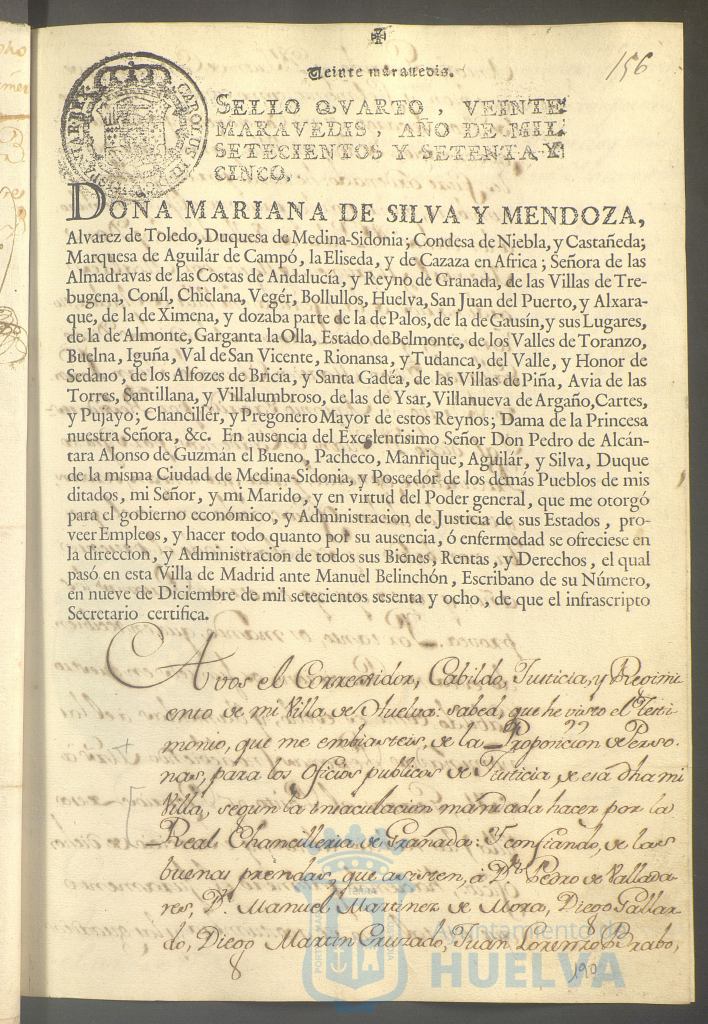 156
Veinte marauedis.
SELLO QVARTO, VEINTE
MARAVEDIS, AÑO DE MIL
SETECIENTOS Y SETENTA Y
CINCO.
CAROLUS III
DOÑA MARIANA DE SILVA Y MENDOZA,
Alvarez de Toledo, Duquesa de Medina-Sidonia; Condesa de Niebla, y Castañeda;
Marquesa de Aguilár de Campó, la Eliseda, y de Cazaza en Africa; Señora de las
Almadravas de las Costas de Andalucía, y Reyno de Granada, de las Villas de Tre-
bugena, Coníl, Chiclana, Vegér, Bollullos, Huelva, San Juan del Puerto, y Alxara-
que, de la de Ximena, y dozaba parte de la de Palos, de la de Gausín, y sus Lugares,
de la de Almonte, Garganta la Olla, Estado de Belmonte, de los Valles de Toranzo,
Buelna, Iguña, Val de San Vicente, Rionansa, y Tudanca, del Valle, y Honor de
Sedano, de los Alfozes de Bricia, y Santa Gadéa, de las Villas de Piña, Avia de las
Torres, Santillana, y Villalumbroso, de las de Ysar, Villanueva de Argaño, Cartes,
y Pujayo; Chancillér, y Pregonero Mayor de estos Reynos; Dama de la Princesa
nuestra Señora, &c. En ausencia del Excelentisimo Señor Don Pedro de Alcán-
tara Alonso de Guzmán el Bueno, Pacheco, Manrique, Aguilár, y Silva, Duque
de la misma Ciudad de Medina-Sidonia, y Poseedor de los demás Pueblos de mis
ditados, mi Señor, y mi Marido, y en virtud del Poder general, que me otorgó
para el gobierno económico, y Administracion de Justicia de sus Estados, pro-
veer Empleos, y hacer todo quanto por su ausencia, ó enfermedad se ofreciese en
la direccion, y Administracion de todos sus Bienes, Rentas, y Derechos, el qual
pasó en esta Villa de Madrid ante Manuel Belinchón, Escribano de su Número,
en nueve de Diciembre de mil setecientos sesenta y ocho, de que el infrascripto
Secretario certifica.
A vos el Corregidor, Cabildo, Justicia, y Regimi
ento de mi Villa de Huelva: sabed, que he visto el Testi-
monio, que me embiasteis, de la Proposicion de Perso-
nas, para los Oficios publicos de Justicia, de esa dha mi
Villa, segun la insaculacion mandada hacer por la
Real Chancilleria de Granada: Y confiando, de las
buenas prendas, que asisten, á Dn Pedro de Vallada-
res, Dn Manuel Martinez de Mora, Diego Gallar-
do, Diego Martin Cruzado, Juan Lorenzo Brabo,
190
Ayuntamiento de
HUELVA